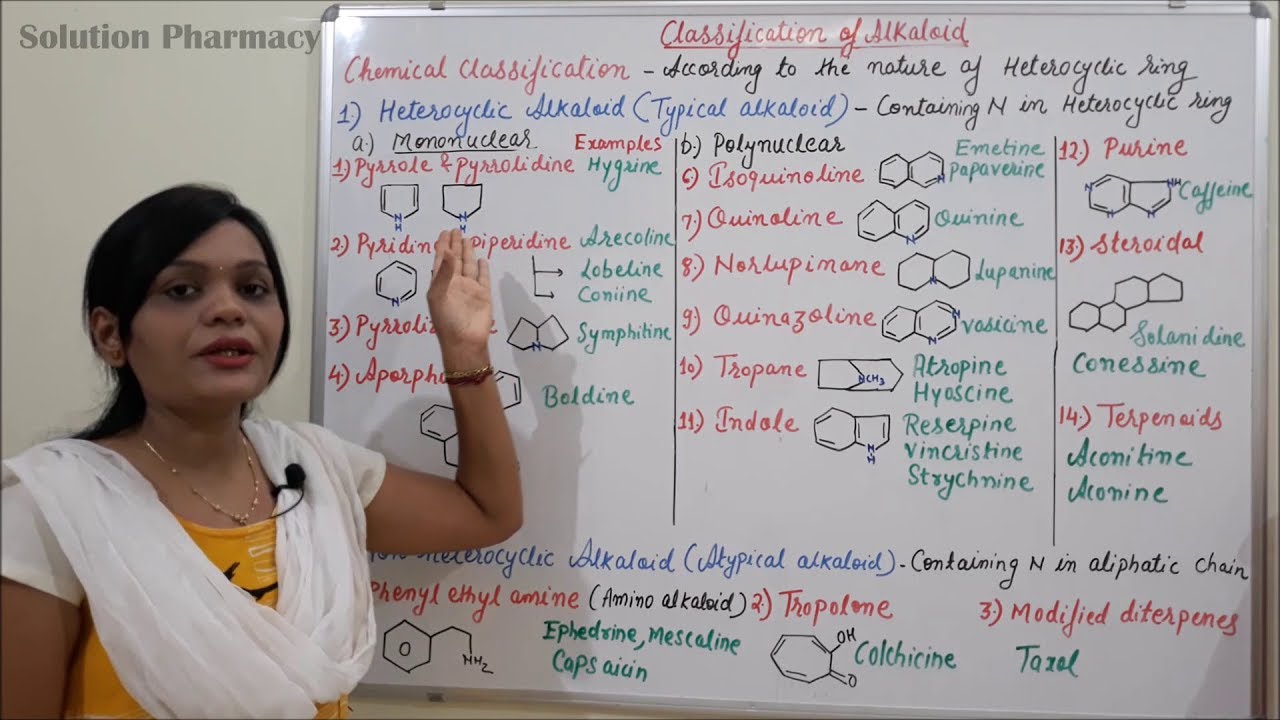 Solution Pharmacy
Classification of Alkaloid
Chemical Classification - According to the nature of Heterocyclic ring
1.) Heterocyclic Alkaloid (Typical alkaloid) - Containing N in Heterocyclic ring
a.) Mononuclear Examples
1.) Pyrrole & Pyrrolidine Hygrine
N
H
N
H
2.) Pyridin piperidine Arecoline
N
Lobeline
Coniine
3.) Pyrroli Symphitine
N
4) Aporph Boldine
b.) Polynuclear
6) Isoquinoline Emetine
Papaverine
N
7.) Quinoline Quinine
N
8.) Norlupinane Lupanine
N
9) Quinazoline Vasicine
N
N
10) Tropane Atropine
Hyoscine
NCH3
11.) Indole Reserpine
Vincristine
Strychnine
N
H
12.) Purine
N
N
NH
N
Caffeine
13.) Steroidal
Solanidine
Conessine
14.) Terpenoids
Aconitine
Aconine
Heterocyclic Alkaloid (Atypical alkaloid) - Containing N in aliphatic chain
Phenyl ethyl amine (Amino alkaloid) 2.) Tropolone 3) Modified diterpenes
NH2
Ephedrine, Mescaline
Capsaicin
OH
O
Colchicine
Taxol